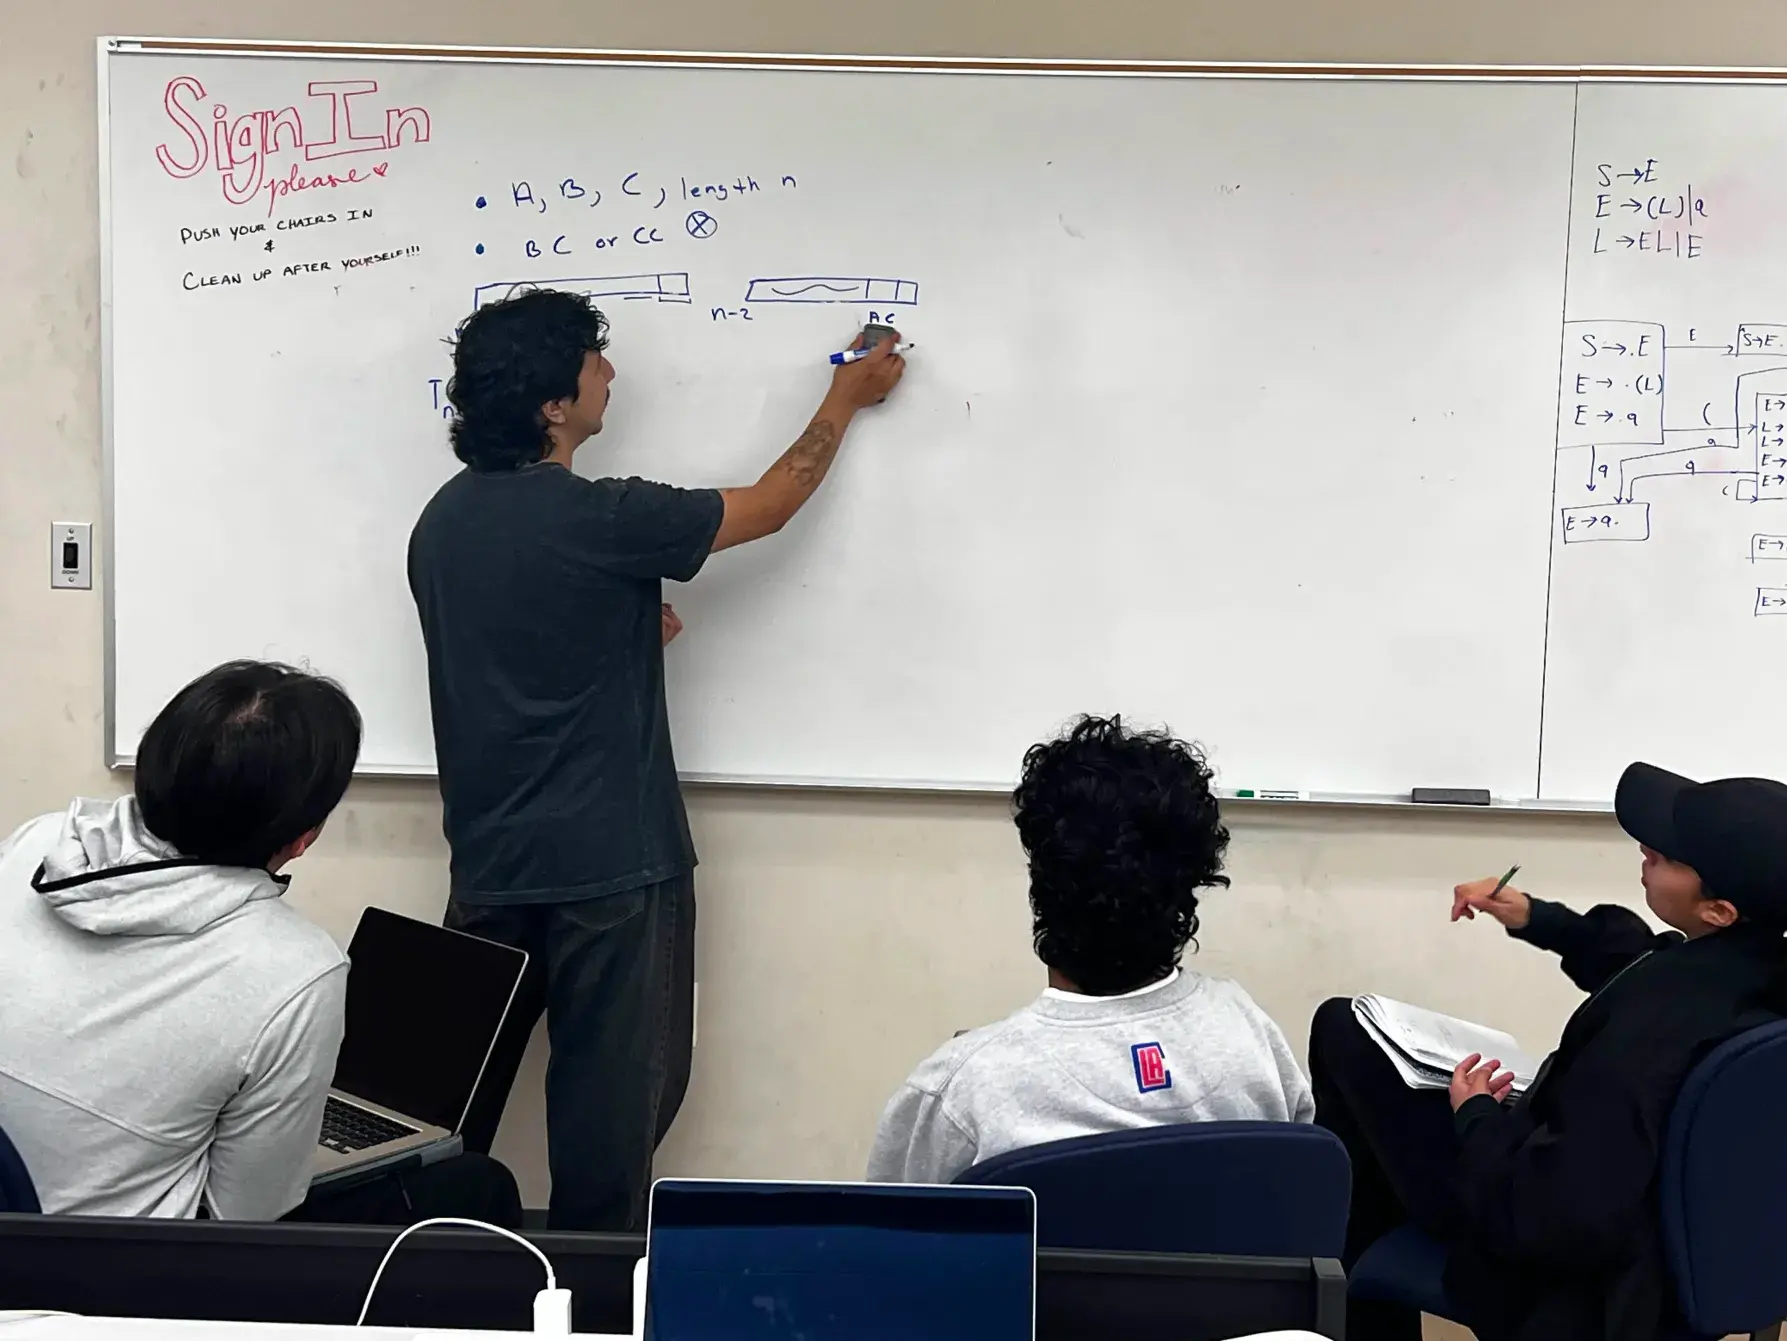 Sign In
please
PUSH YOUR CHAIRS IN
&
CLEAN UP AFTER YOURSELF!!!
• A, B, C, length n
• BC or CC ⊗
n-2
A C
Tn
S→E
E→(L)|a
L→EL|E
S→.E
E→.(L)
E→.a
E
S→E.
(
a
a
a
(
E→
L→
L→
E→
E→
E→a.
E→
E→
UP
DOWN
LA